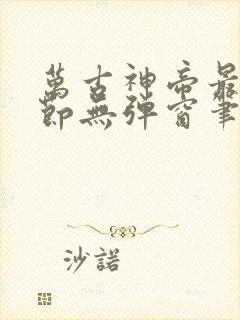 萬古神帝最
節無彈窗筆
沙諾